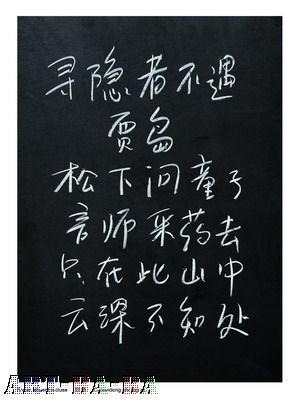 寻隐者不遇
贾岛
松下问童子
言师采药去
只在此山中
云深不知处
ART-BA-BA